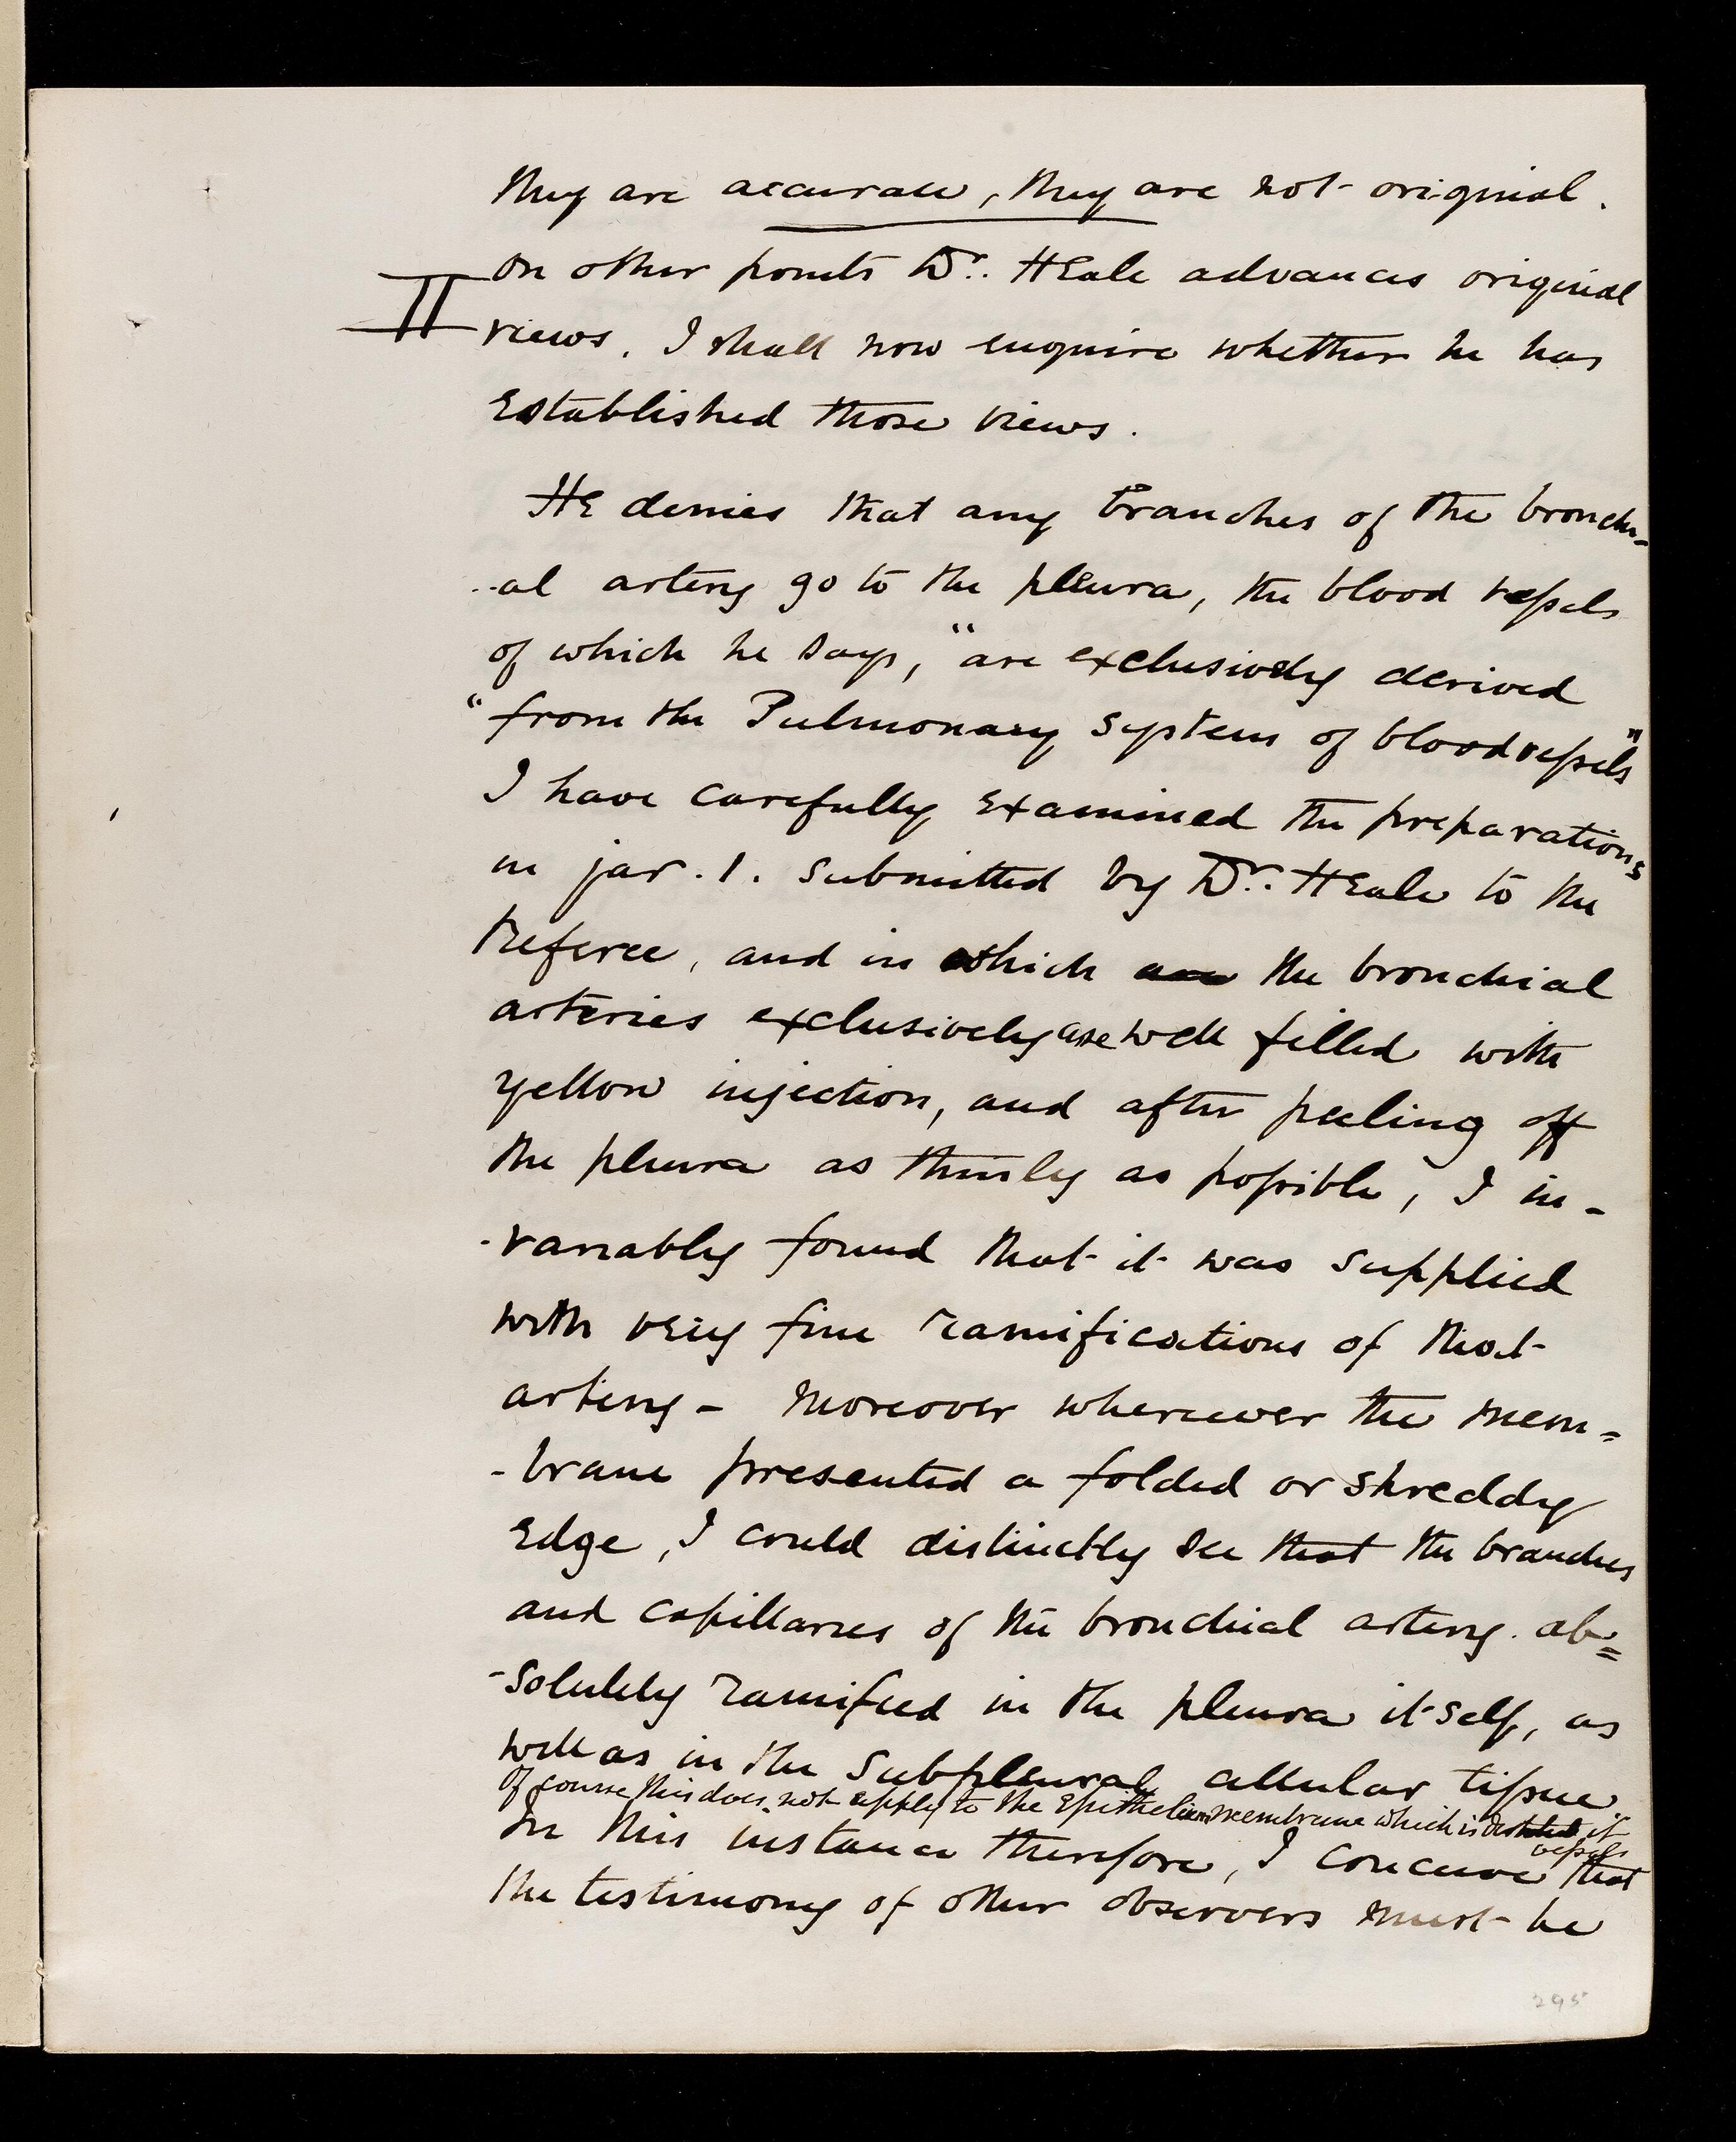 they are accurate, they are not original.
II On other points Dr. Heale advances original
views. I shall now enquire whether he has
Established those views.
He denies that any branches of the bronchi-
-al artery go to the pleura, the blood vessels
of which he says, "are exclusively derived
"from the Pulmonary system of bloodvessels"
I have carefully Examined the preparations
in jar. 1. submitted by Dr. Heale to the
Referee, and in which the bronchial
arteries exclusively are well filled with
yellow injection, and after peeling off
the pleura as thinly as possible, I in-
-variably found that it was supplied
with very fine ramifications of that
artery - Moreover wherever the mem=
-brane presented a folded or shreddy
Edge, I could distinctly see that the branches
and capillaries of the bronchial artery. ab=
-solutely ramified in the pleura itself, as
well as in the Subpleural cellular tissue.
Of course this does not apply to the Epithelium membrane which is of
vessels
In this instance therefore, I conceive that
the testimony of other observers must be
295